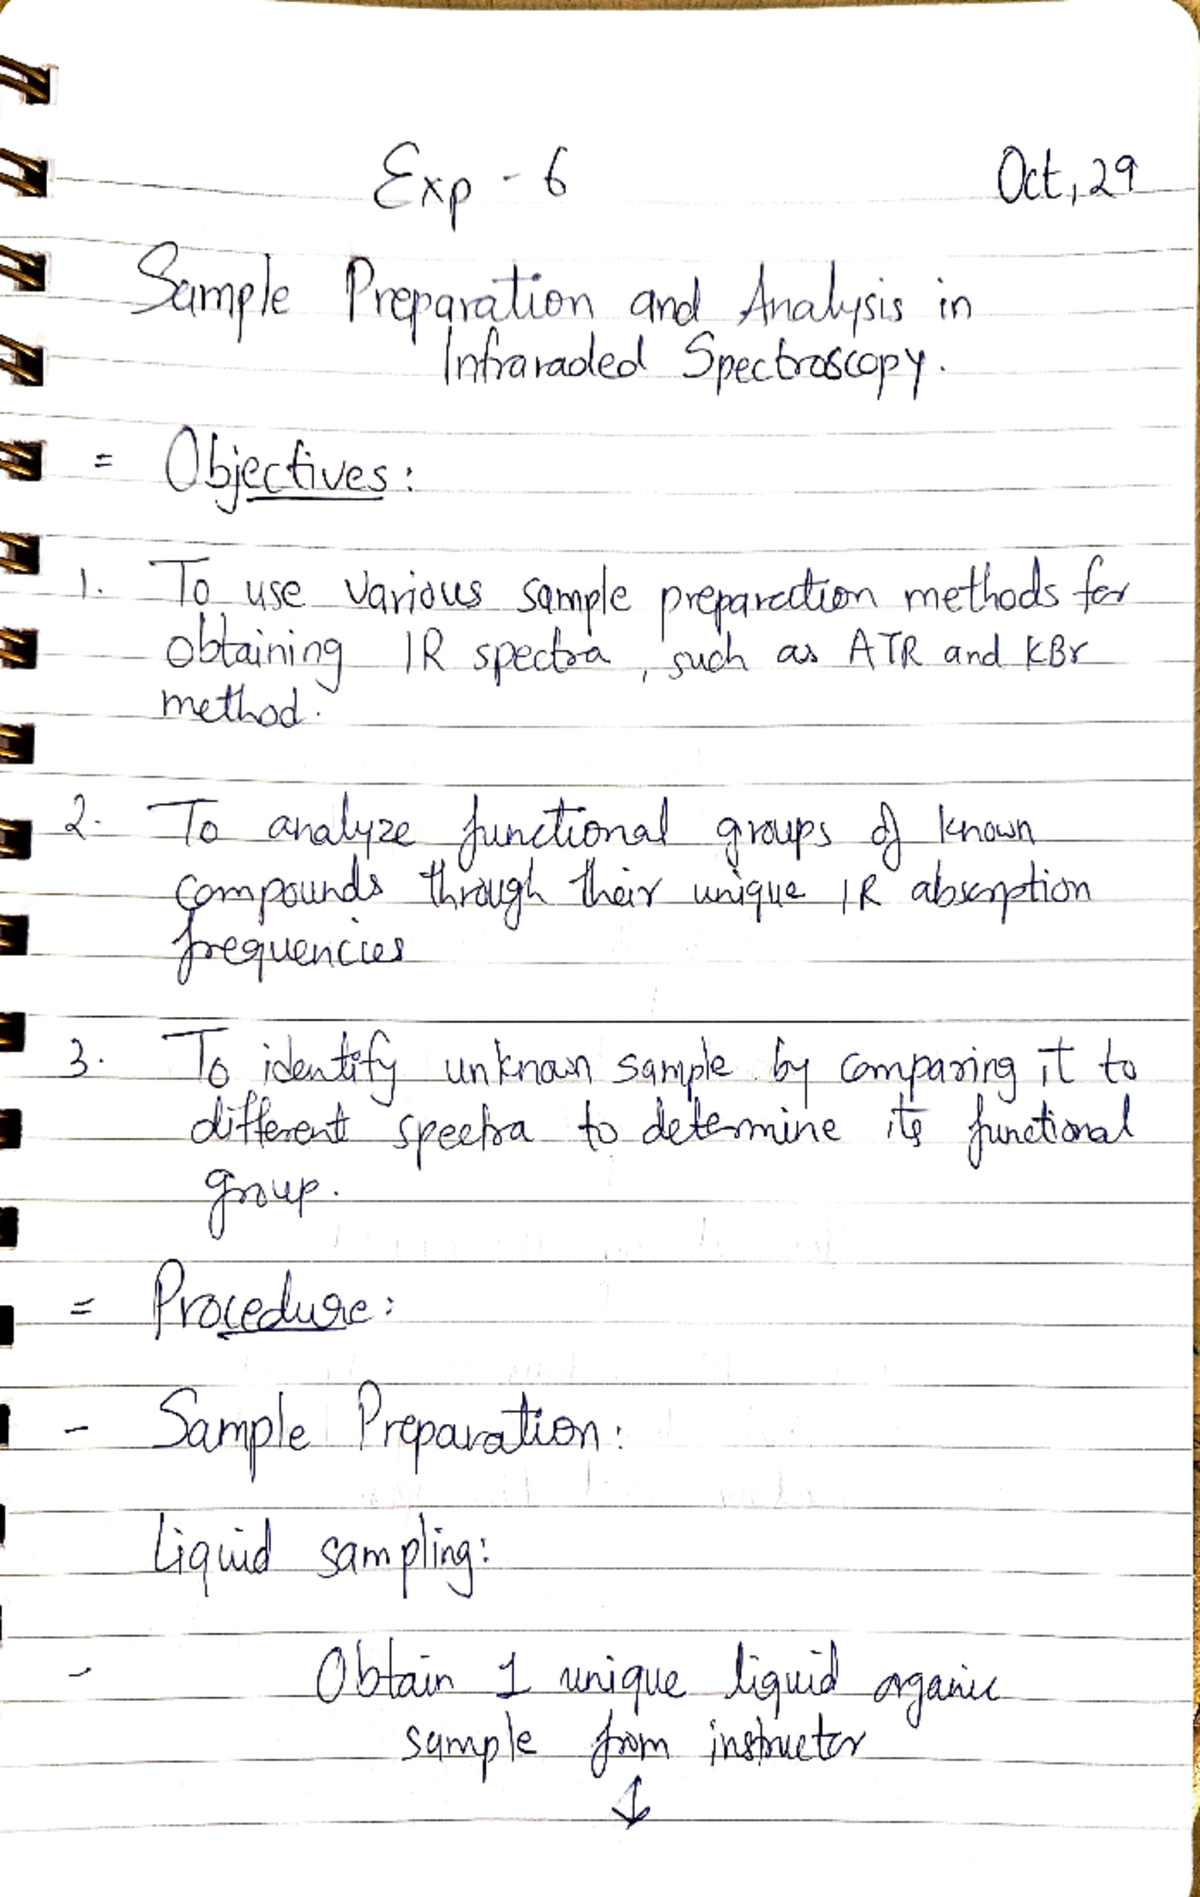 Exp - 6
Oct, 29
Sample Preparation and Analysis in
Infraraded Spectroscopy.
= Objectives:
1. To use various sample preparation methods for
obtaining IR spectra, such as ATR and KBr
method.
2. To analyze functional groups of known
compounds through their unique IR absorption
frequencies
3. To identify unknown sample by comparing it to
different spectra to determine its functional
group.
= Procedure:
- Sample Preparation:
Liquid sampling:
- Obtain 1 unique liquid organic
sample from instructor
↓